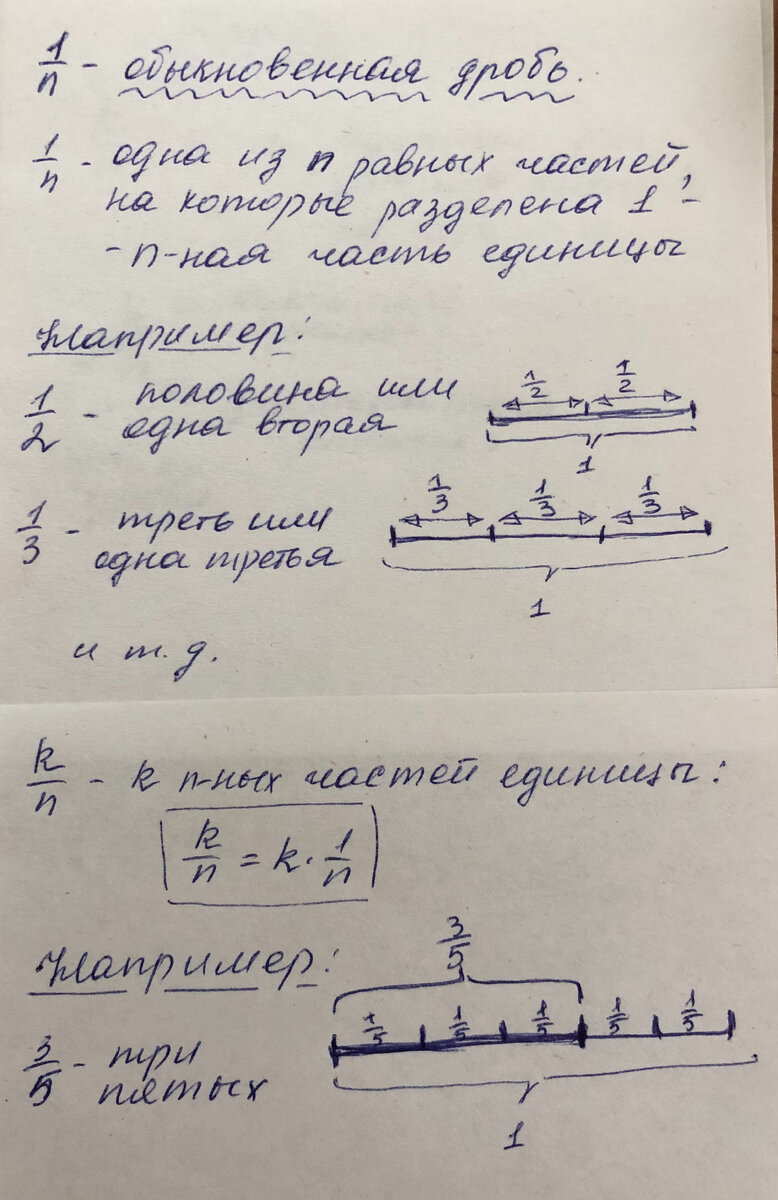 1/n - обыкновенная дробь.
1/n - одна из n равных частей,
на которые разделена 1 -
- n-ная часть единицы
Например:
1/2 - половина или
одна вторая
1/2 1/2
1
1/3 - треть или
одна третья
1/3 1/3 1/3
1
и т.д.
k/n - k n-ных частей единицы:
k/n = k · 1/n
Например:
3/5
3/5 - три
пятых
1/5 1/5 1/5 1/5 1/5
1